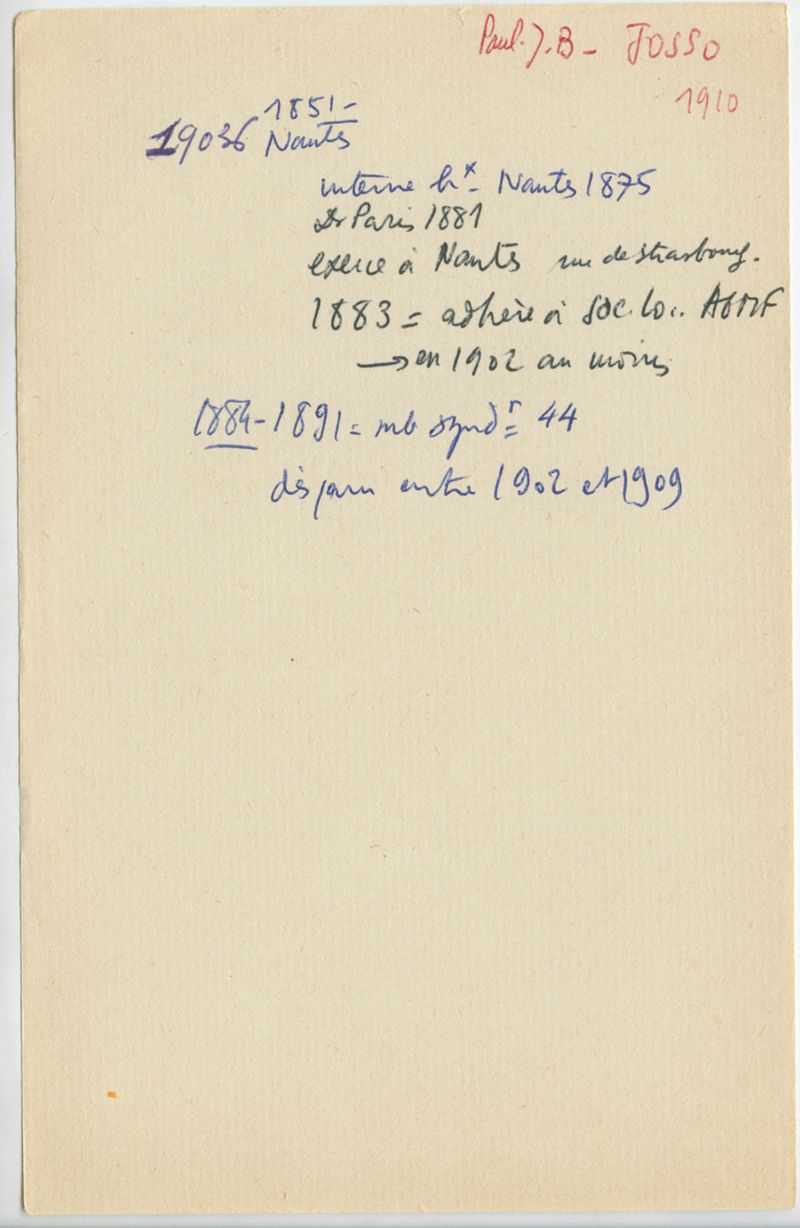 Paul. J. B - JOSSO
1910
1851-
19036 Nantes
interne hx - Nantes 1875
Dr Paris 1881
exerce à Nantes rue de Strasbourg.
1883 = adhère à Soc. loc. AGMF
→ en 1902 au moins
1884-1891 = mb synd r = 44
disparu entre 1902 et 1909